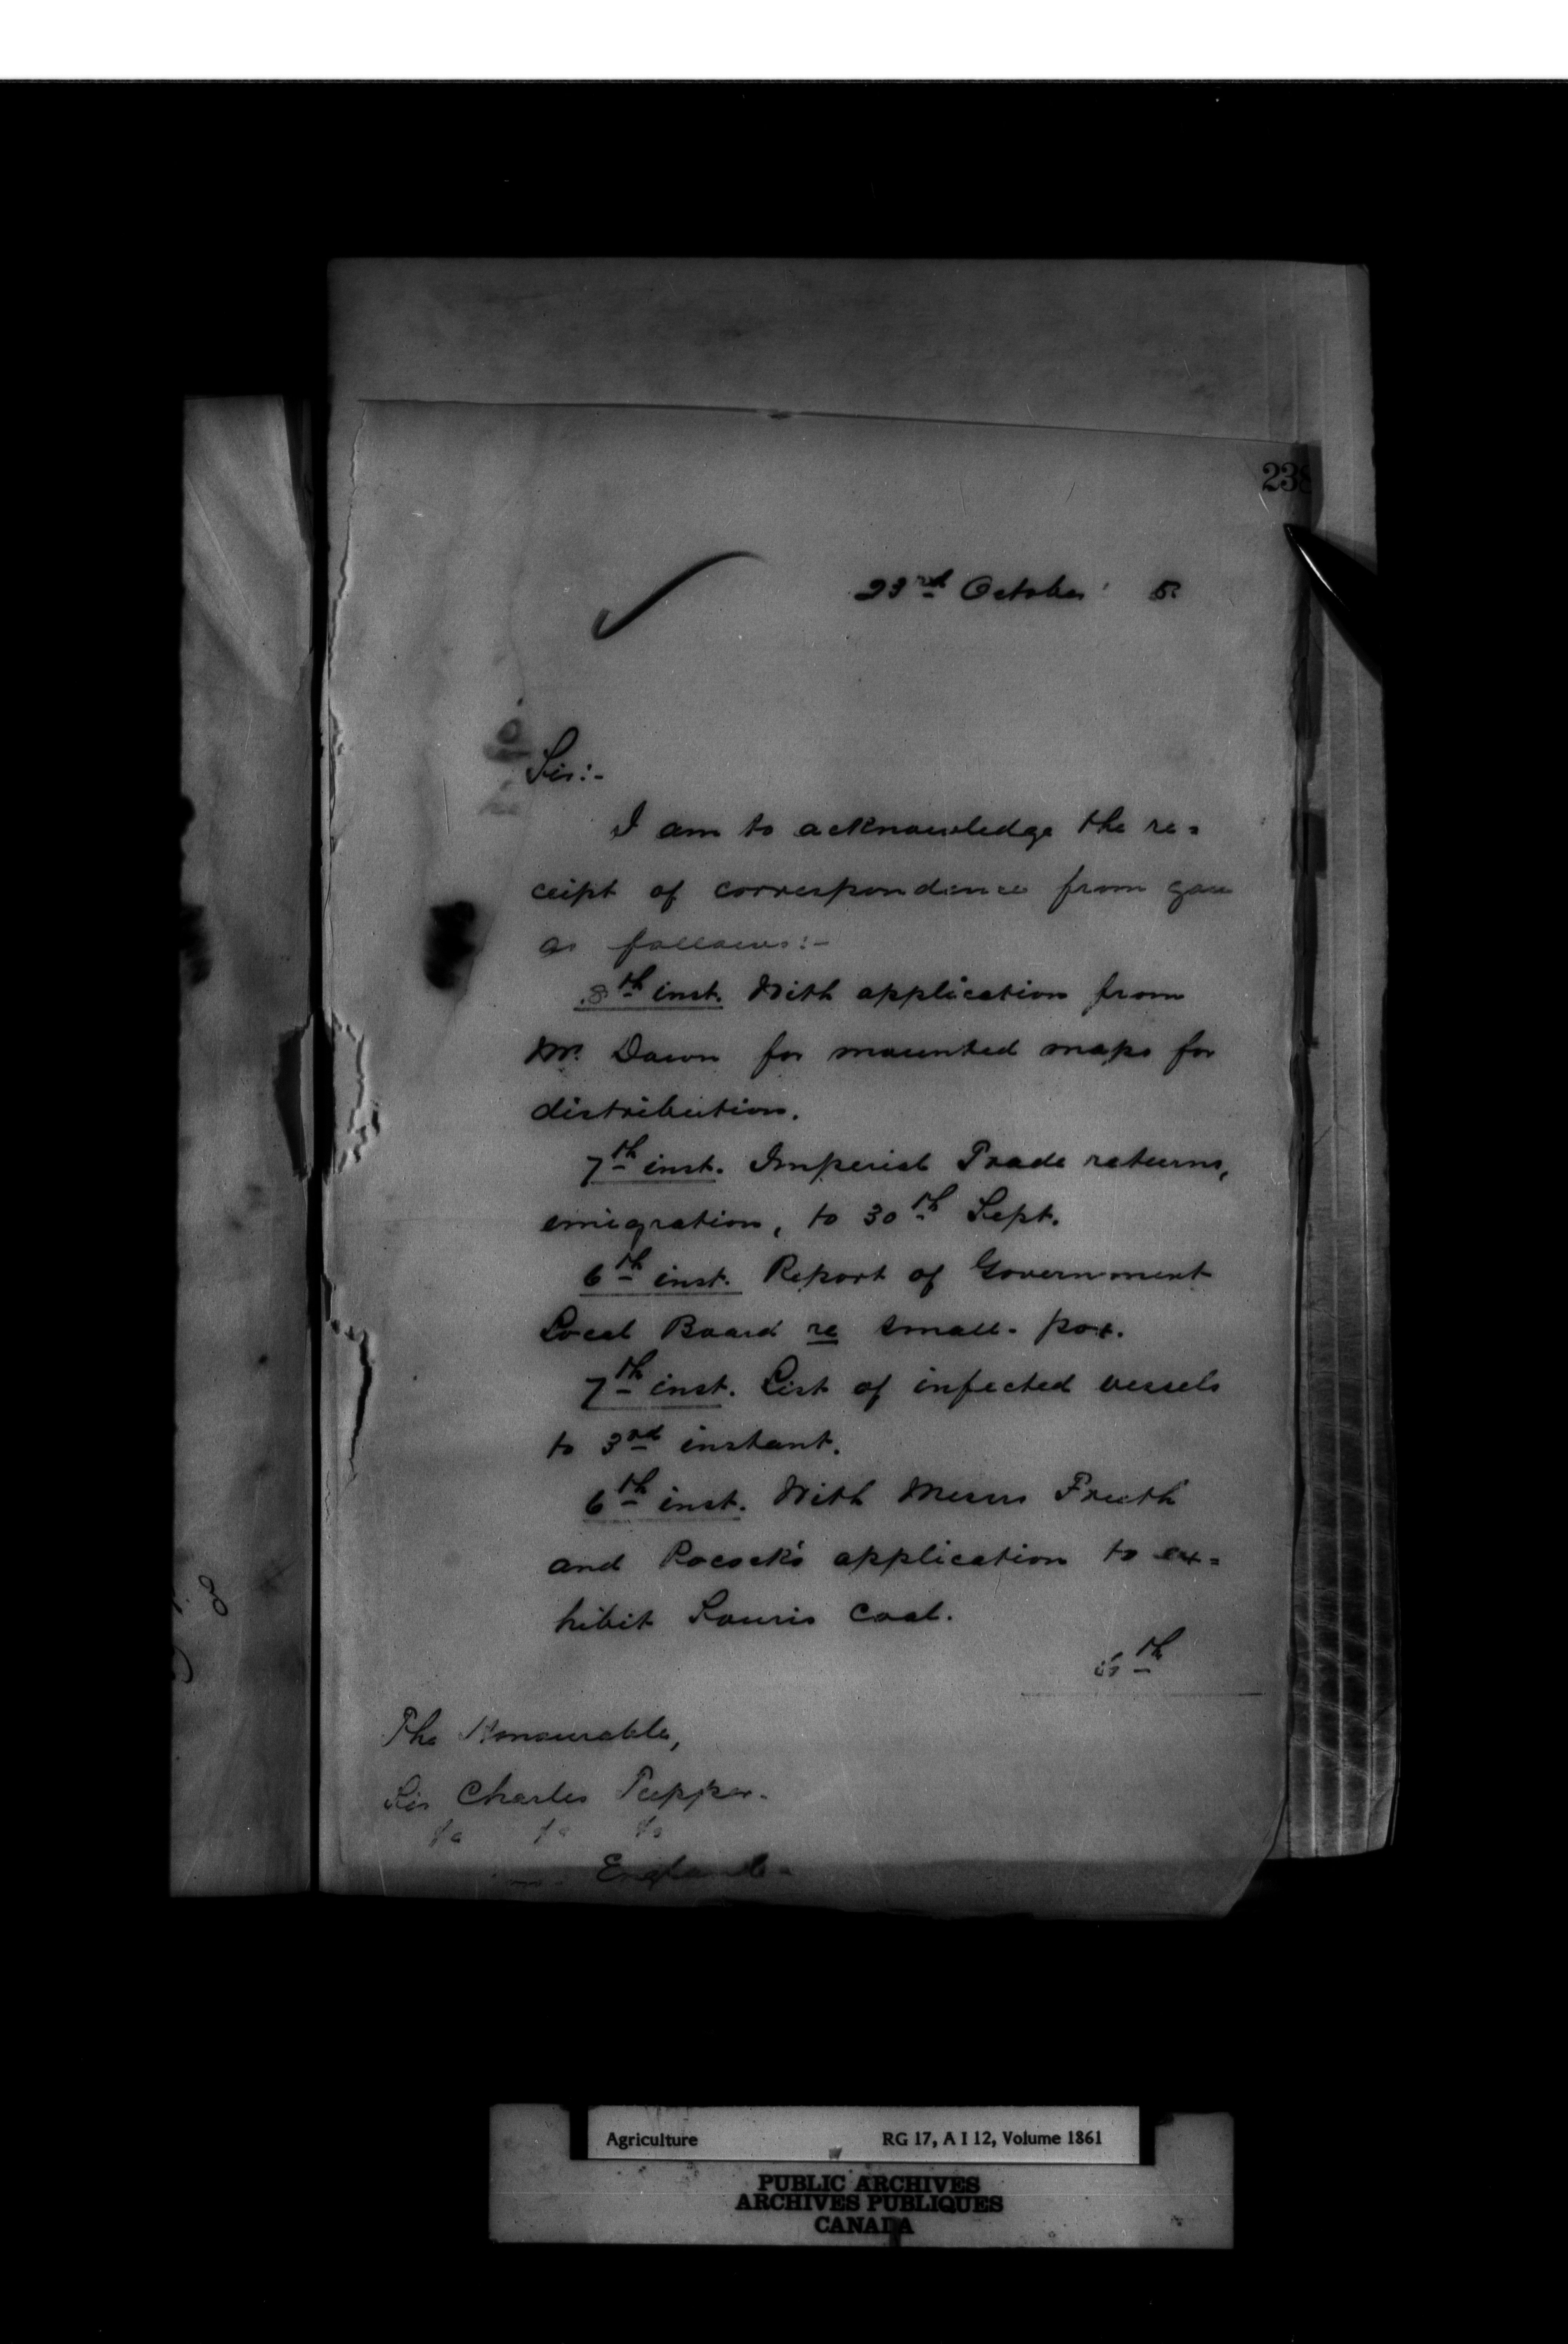 238
23rd October 5
Sir:-
I am to acknowledge the re=
ceipt of correspondence from you
as follows:-
8th inst. With application from
Mr. Down for mounted maps for
distribution.
7th inst. Imperial Trade returns,
emigration, to 30th Sept.
6th inst. Report of Government
Local Board re small-pox.
7th inst. List of infected vessels
to 3rd instant.
6th inst. With Messrs Freeth
and Pocock's application to ex=
hibit Souris Coal.
The Honourable,
Sir Charles Tupper.
&c &c &c
England.
Agriculture RG 17, A I 12, Volume 1861
PUBLIC ARCHIVES
ARCHIVES PUBLIQUES
CANADA